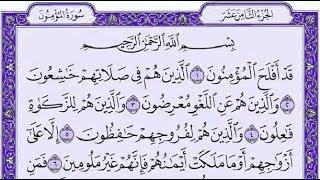 الجزء الثامن عشر
سورة المؤمنون
بِسْمِ اللَّهِ الرَّحْمَٰنِ الرَّحِيمِ
قَدْ أَفْلَحَ الْمُؤْمِنُونَ ١ الَّذِينَ هُمْ فِي صَلَاتِهِمْ خَٰشِعُونَ
٢ وَالَّذِينَ هُمْ عَنِ اللَّغْوِ مُعْرِضُونَ ٣ وَالَّذِينَ هُمْ لِلزَّكَوٰةِ
فَٰعِلُونَ ٤ وَالَّذِينَ هُمْ لِفُرُوجِهِمْ حَٰفِظُونَ ٥ إِلَّا عَلَىٰ
أَزْوَٰجِهِمْ أَوْ مَا مَلَكَتْ أَيْمَٰنُهُمْ فَإِنَّهُمْ غَيْرُ مَلُومِينَ ٦ فَمَنِ